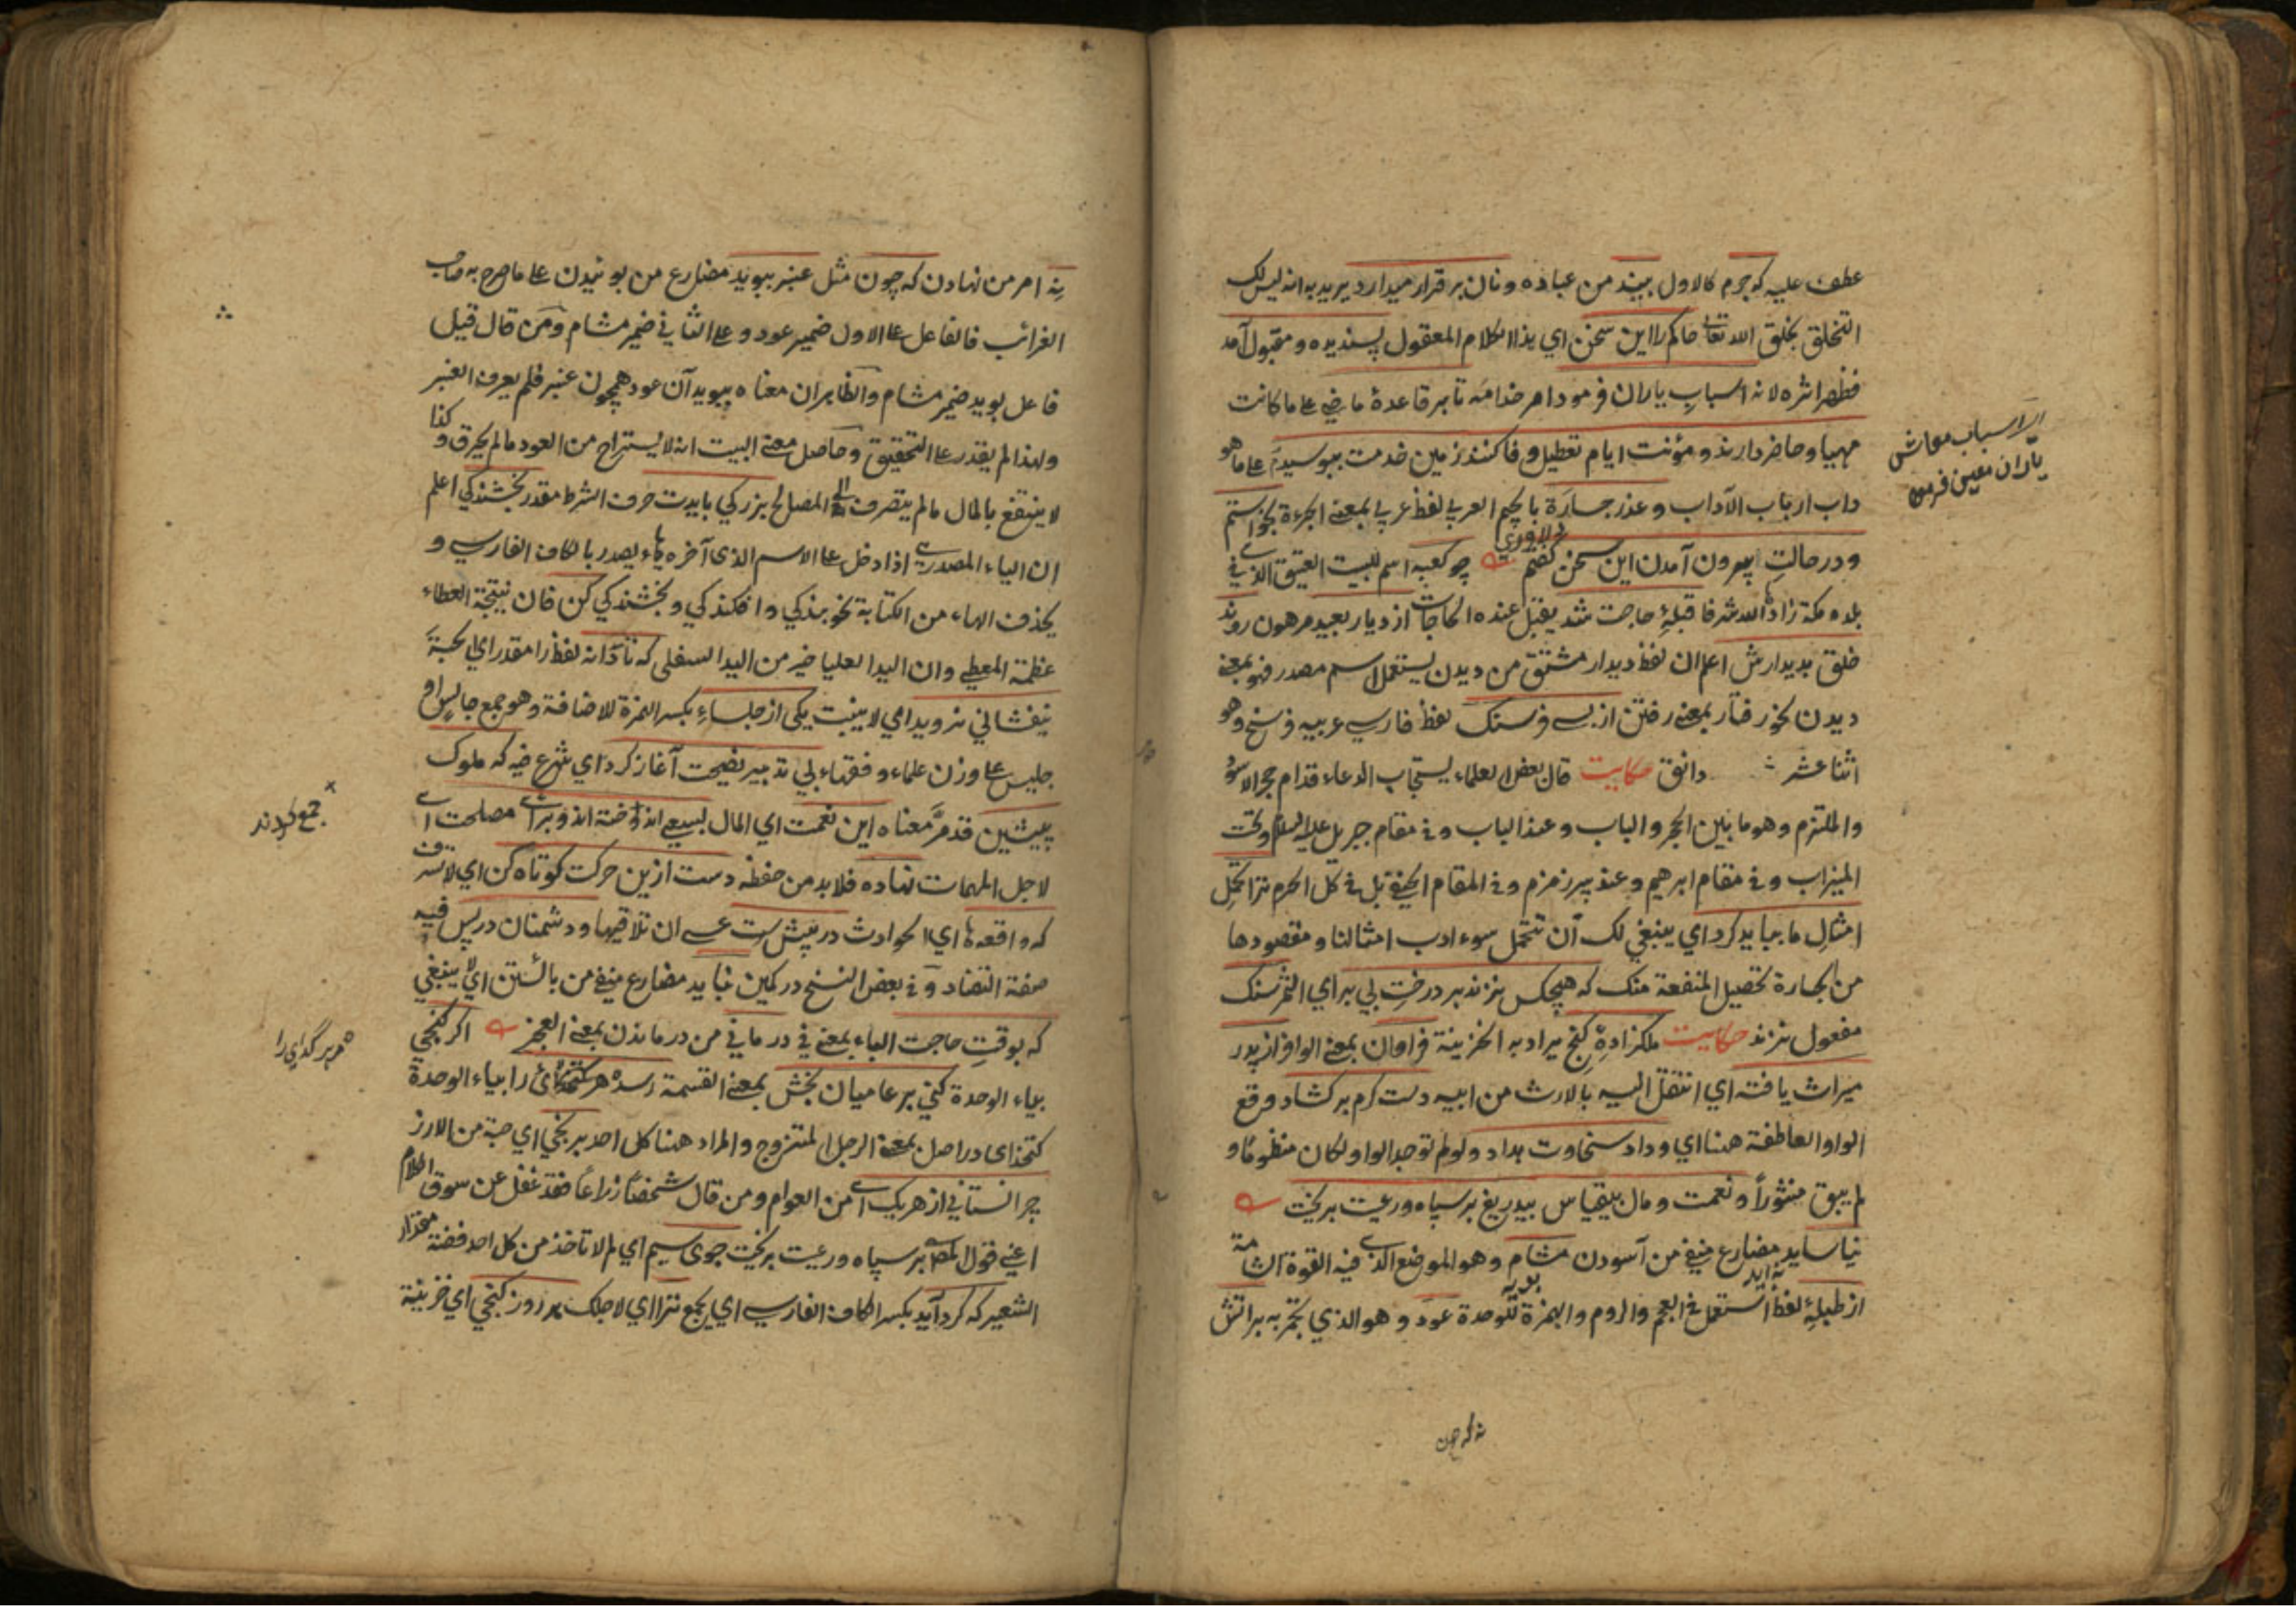 عطف عليه كه جرم كالاول بيند من عباده ونان بر قرار ميدارد يريد به انه ليس لك
التخلق بخلق الله تعالى حاكم را اين سخن اي هذا الكلام المعقول پسنديده ومقبول آمد
فظهر اثره لانه اسباب ياران فرمود امر خدامه تا بر قاعدهٔ ماضي على ما كانت
مهيا وحاضر دارند ومؤنت ايام تعطيل وفا كنند زمين خدمت ببوسيدم على ما هو
داب ارباب الآداب وعذر جسارة بالجيم العربي لفظ عربي بمعنى الجرءة بخواستم
ودر حالت بيرون آمدن اين سخن گفتم چو كعبه اسم للبيت العتيق الذي في
بلده مكة زادها الله شرفا قبلهٔ حاجت شد يقبل عنده الحاجات از ديار بعيد مرهون روند
خلق بديدارش اعلم ان لفظ ديدار مشتق من ديدن يستعمل اسم مصدر فهو بمعنى
ديدن نحو رفتار بمعنى رفتن از بسى فرسنك لفظ فارسي عربيه فرسخ وهو
اثنا عشر دانق حكايت قال بعض العلماء يستجاب الدعاء قدام حجر الاسود
والملتزم وهو ما بين الحجر والباب وعند الباب وفي مقام جبريل عليه السلام وتحت
الميزاب وفي مقام ابرهيم وعند بير زمزم وفي المقام الحنفي بل في كل الحرم ترا تحمل
امثال ما ببايد كرد اي ينبغي لك ان تتحمل سوء ادب امثالنا ومقصودها
من الجسارة تحصيل المنفعة منك كه هيچكس نزند بر درخت بي بر اي الثمر سنك
مفعول نزند حكايت ملكزادهٔ كنج ميراد به الخزينة فراوان بمعنى الوافر از پدر
ميراث يافته اي انتقل اليه بالارث من ابيه دست كرم بركشاد وقع
الواو العاطفة هنا اي وداد سخاوت بداد ولو لم توجد الواو لكان منظوما و
لم يبق منثوراً ونعمت ومال بيقياس بيدريغ بر سپاه ورعيت بريخت
نياسايد مضارع منفي من آسودن مشام وهو الموضع الذي فيه القوة الشامة
از طبلهٔ لفظ استعمل في العجم والروم والهمزة للوحدة عود وهو الذي يتجمر به بر آتش
نه امر من نهادن كه چون مثل عنبر ببويد مضارع من بوئيدن على ما صرح به صاحب
الغرائب فالفاعل على الاول ضمير عود وعلى الثاني ضمير مشام ومن قال قيل
فاعل بويد ضمير مشام والظاهر ان معناه ببويد آن عود همچون عنبر فلم يعرف العنبر
ولهذا لم يقدر على التحقيق وحاصل معنى البيت انه لا يستراح من العود ما لم يحرق وكذا
لا ينتفع بالمال ما لم يتصرف الى المصالح بزركي بايدت حرف الشرط مقدر بخشندكي اعلم
ان الياء المصدري اذا دخل على الاسم الذي آخره هاء يصدر بالكاف الفارسي و
يحذف الهاء من الكتابة نحو بندكي وافكندكي وبخشندكي كن فان نتيجة العطاء
عظمة المعطي وان اليد العليا خير من اليد السفلى كه تا دانه لفظ را مقدر اي الحبة
نيفشاني نرويد امي لا ينبت يكى از جلساء بكسر الهمزة للاضافة وهو جمع جالس او
جليس على وزن علماء وفقهاء بي تدبير نصيحت آغاز كرد اي شرع فيه كه ملوك
پيشين قد مر معناه اين نعمت اي المال بسعي اندوخته اند وبراي مصلحت اي
لاجل المهمات نهاده فلا بد من حفظه دست ازين حركت كوتاه كن اي لا تسرف
كه واقعه ها اي الحوادث در پيش ست عسى ان تلاقيها ودشمنان در پس فيه
صفة التضاد وفي بعض النسخ در كمين نبايد مضارع منفي من بائستن اي لا ينبغي
كه بوقت حاجت الباء بمعنى في در ماني من درماندن بمعنى العجز اكر كنجي
بياء الوحدة كني بر عاميان بخش بمعنى القسمة رسد هر كتخدائى را بياء الوحدة
كتخداى در اصل بمعنى الرجل المتزوج والمراد هنا كل احد برنجي اي حبة من الارز
چرا نستاني از هر يك اي من العوام ومن قال شخصا زراعا فقد غفل عن سوق الكلام
اعني قول المص بر سپاه ورعيت بريخت جوى سيم اي لم لا تاخذ من كل احد فضة مقدار
الشعير كه كرد آيد بكسر الكاف الفارسي اي يجمع ترا اي لاجلك هر روز كنجي اي خزينة
اسباب معاش
ياران معين فرمود
دلاوري
جمع كردند
هر گداى را